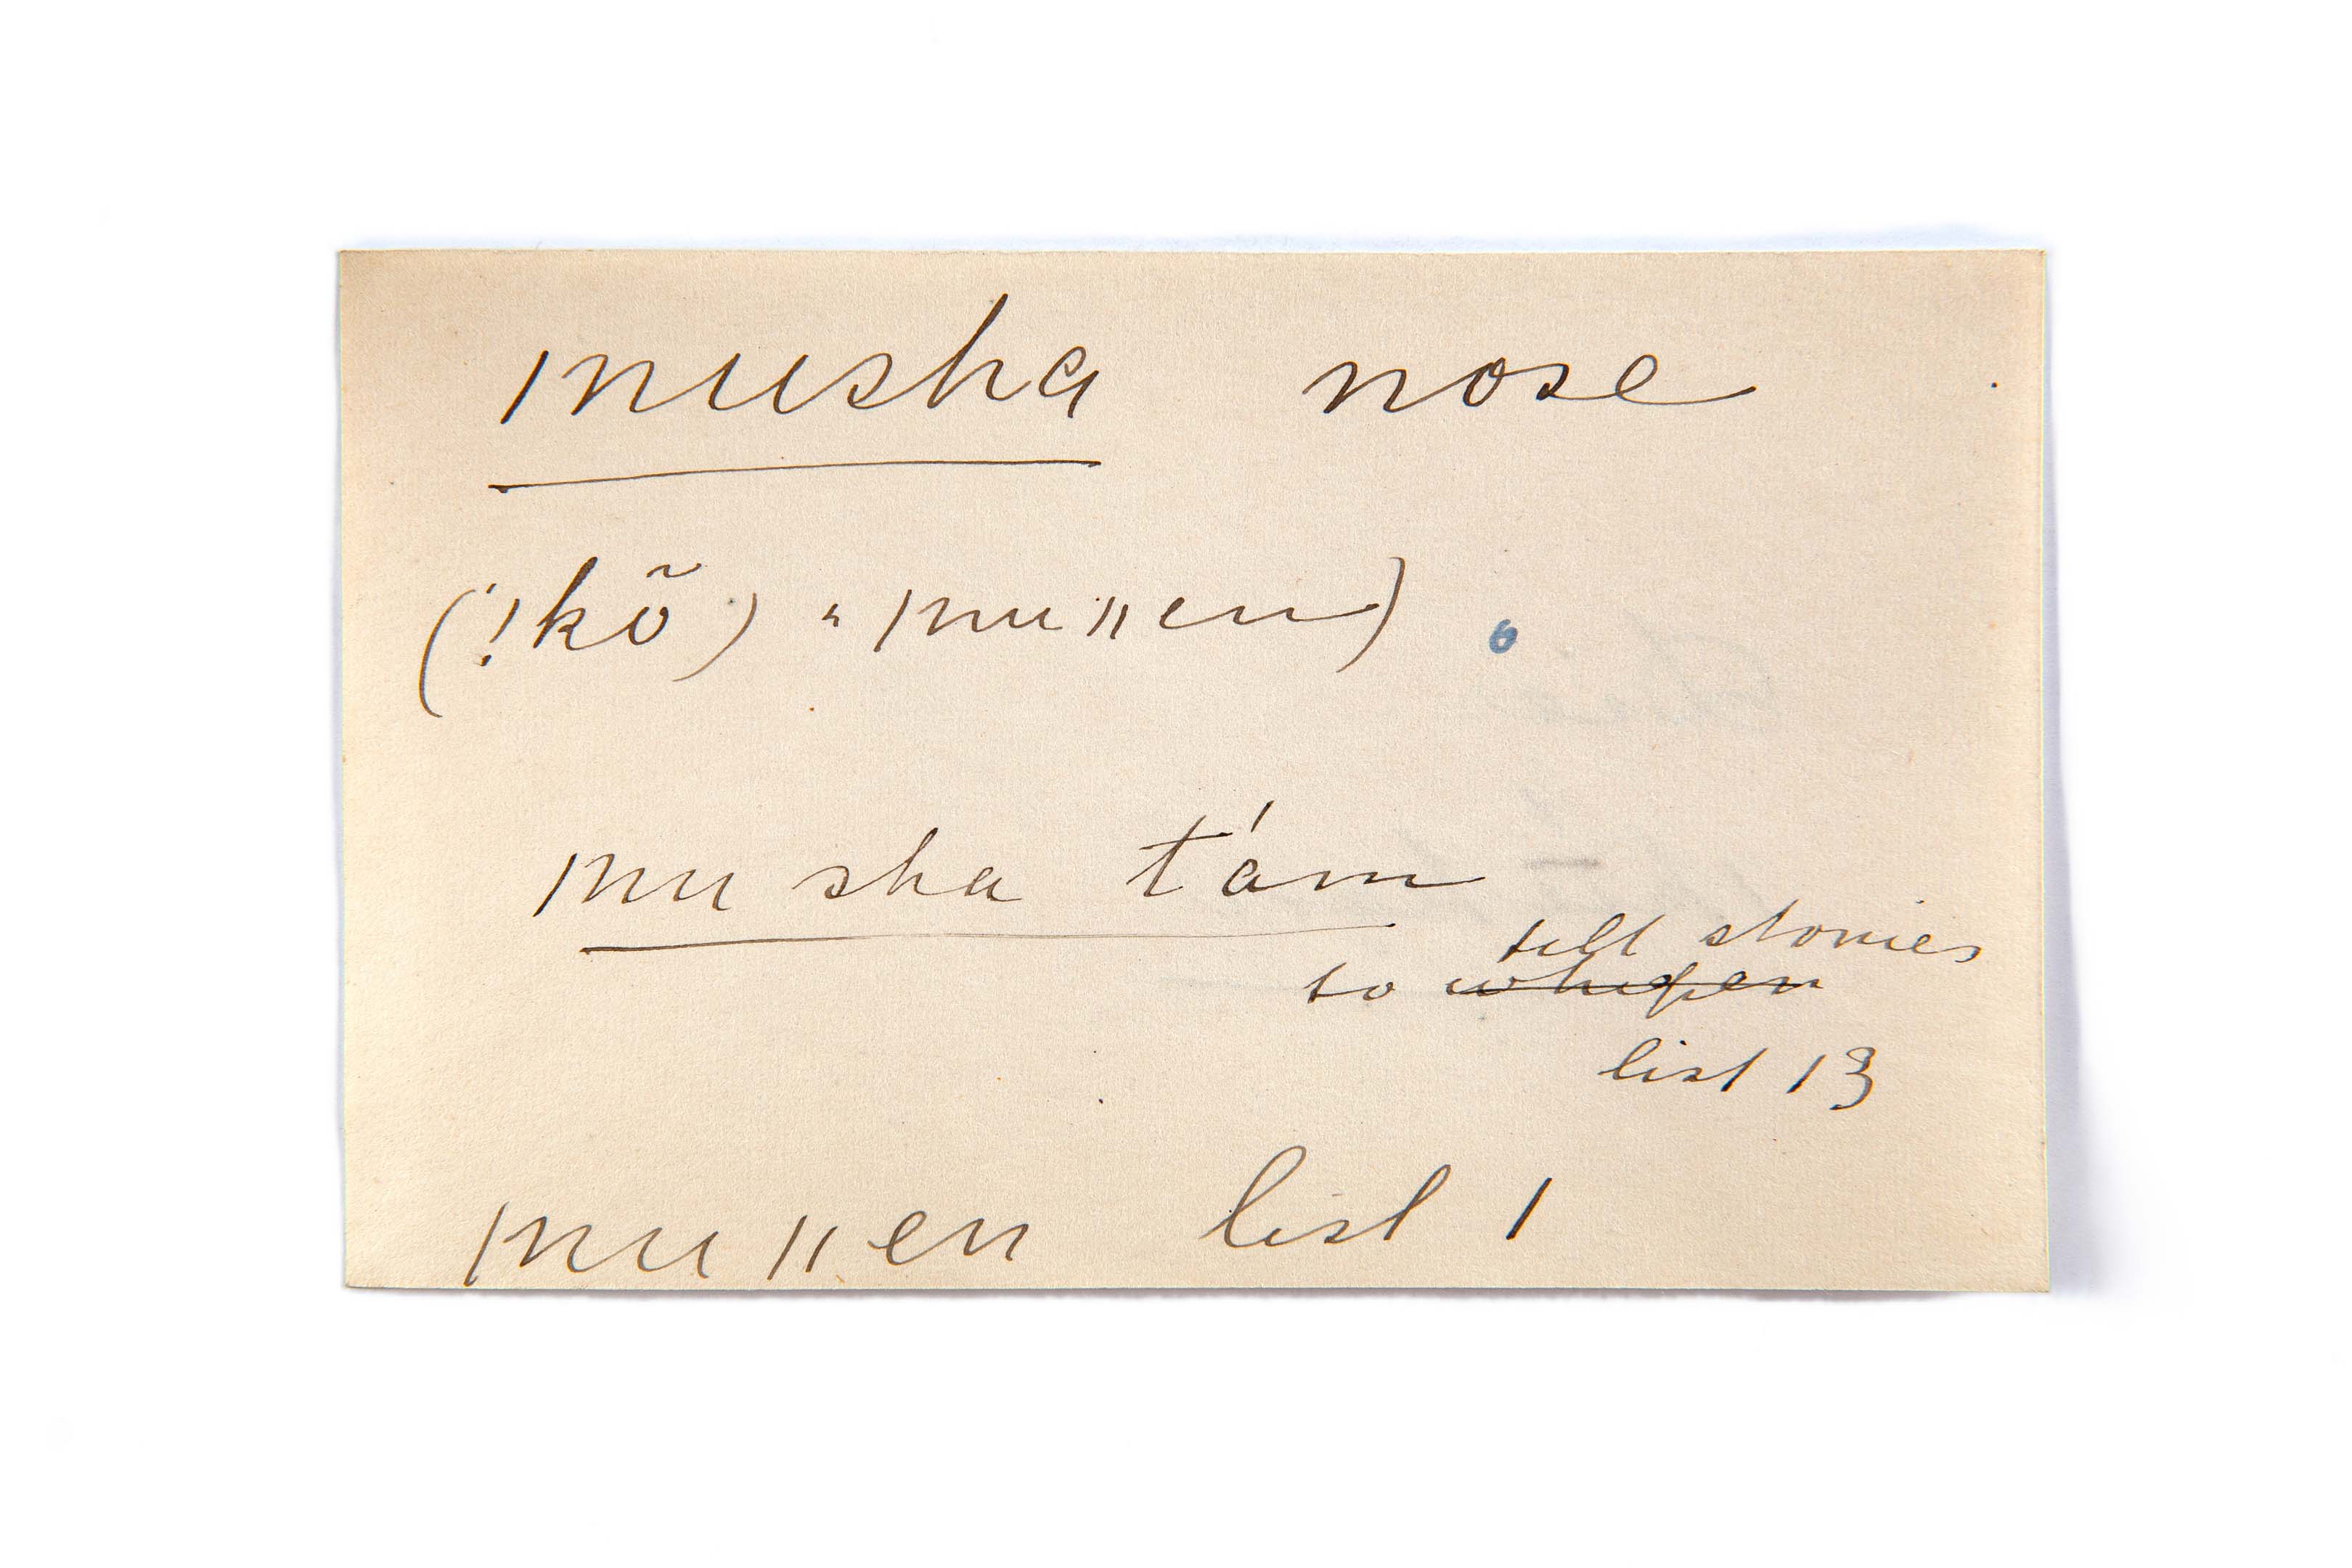 ǀnusha nose
(!kõ) " ǀnuǁen)
ǀnu sha t'am
tell stories
to
list 13
ǀnu ǁen list 1